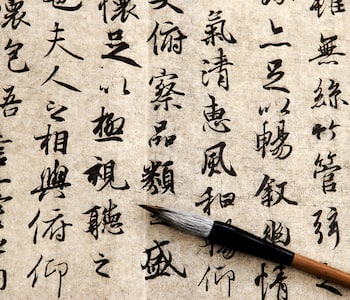 雖無絲竹管弦之
亦足以暢敘幽情
氣清惠風和暢仰
大俯察品類之盛
懷足以極視聽之
也夫人之相與俯仰
懷